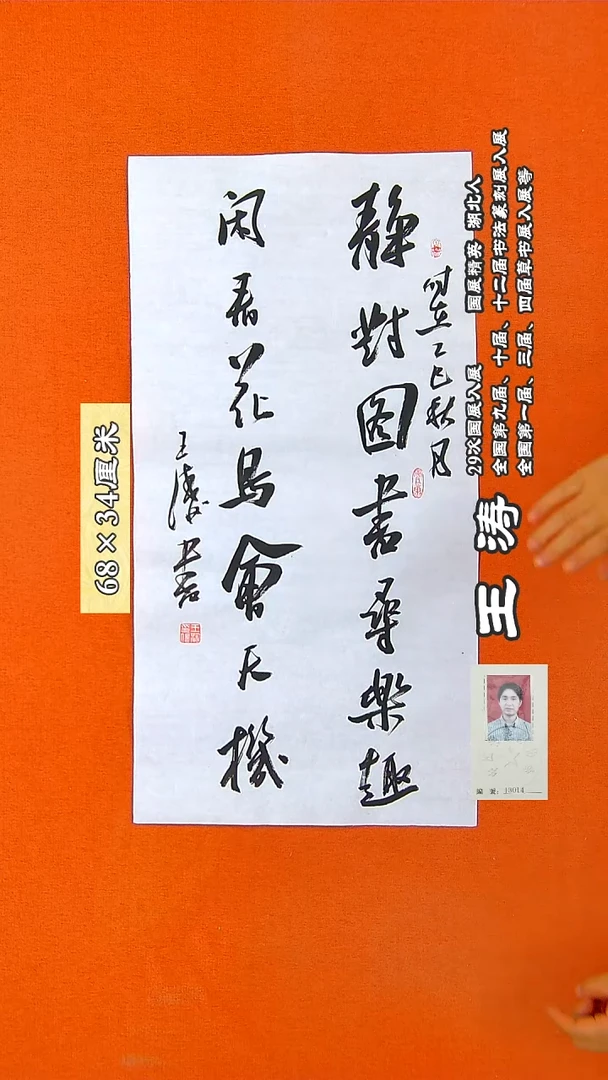 静對图書尋樂趣
时在乙巳秋月
闲看花鸟會天機
王涛书
68×34厘米
王涛
29次国展入展 国展精英 湖北人
全国第九届、十届、十二届书法篆刻展入展
全国第一届、三届、四届草书展入展等
编号：13014